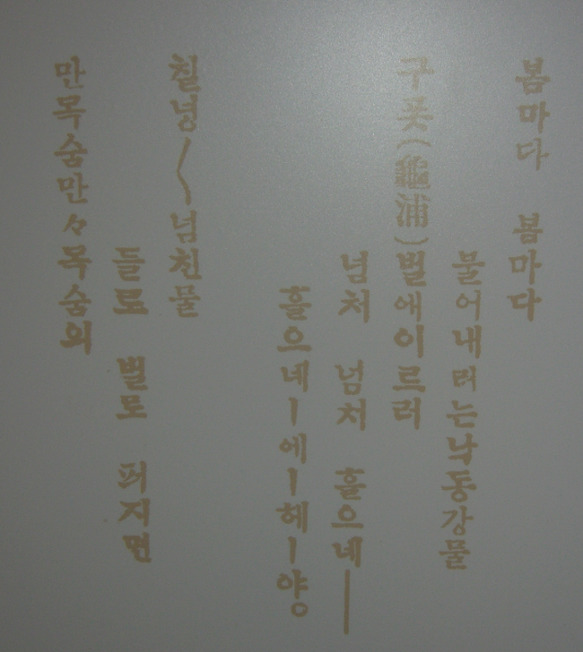 봄마다 봄마다
불어내리는낙동강물
구폿(龜浦)벌에이르러
넘처 넘처 흘으네―
흘으네―에―헤―야°
칠넝〳〵넘친물
들로 벌로 퍼지면
만목숨만々목숨의